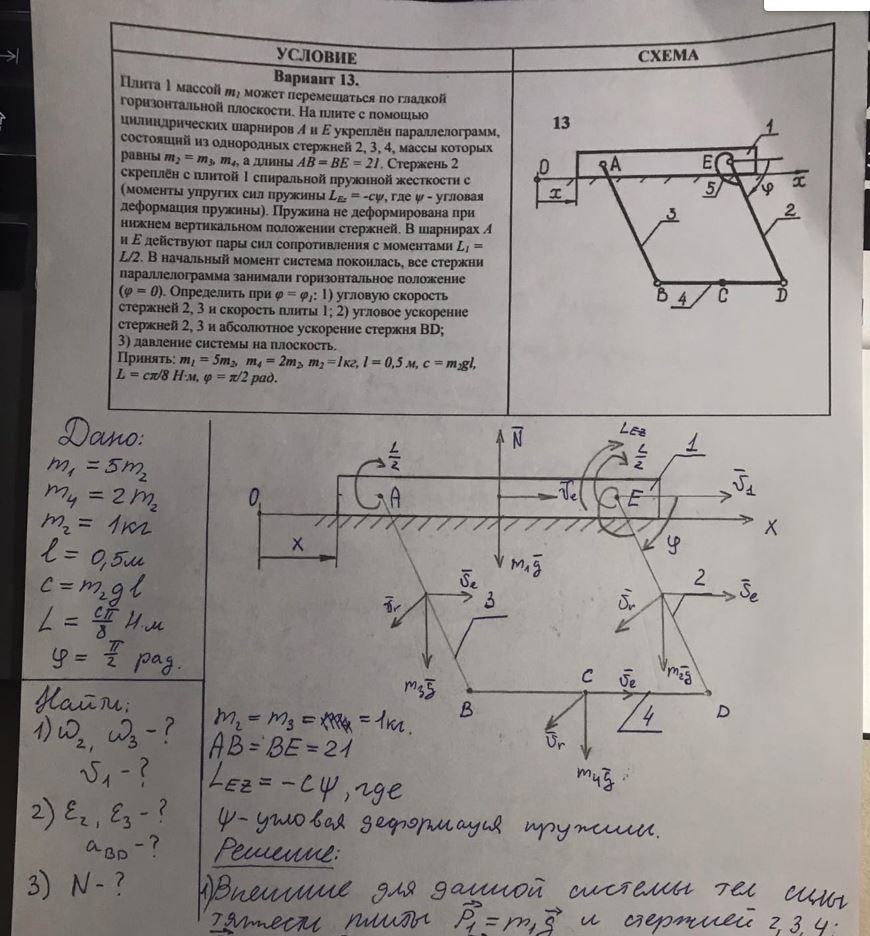 УСЛОВИЕ
СХЕМА
Вариант 13.
Плита 1 массой m₁ может перемещаться по гладкой
горизонтальной плоскости. На плите с помощью
цилиндрических шарниров A и E укреплён параллелограмм,
состоящий из однородных стержней 2, 3, 4, массы которых
равны m₂ = m₃, m₄, а длины AB = BE = 2l. Стержень 2
скреплён с плитой 1 спиральной пружиной жесткости c
(моменты упругих сил пружины L_Ez = -cψ, где ψ - угловая
деформация пружины). Пружина не деформирована при
нижнем вертикальном положении стержней. В шарнирах A
и E действуют пары сил сопротивления с моментами L₁ =
L/2. В начальный момент система покоилась, все стержни
параллелограмма занимали горизонтальное положение
(φ = 0). Определить при φ = φ₁: 1) угловую скорость
стержней 2, 3 и скорость плиты 1; 2) угловое ускорение
стержней 2, 3 и абсолютное ускорение стержня BD;
3) давление системы на плоскость.
Принять: m₁ = 5m₂, m₄ = 2m₂, m₂ =1кг, l = 0,5 м, c = m₂gl,
L = cπ/8 Н·м, φ = π/2 рад.
13
1
O
A
E
x
x
5
φ
3
2
B
C
D
4
Дано:
m₁ = 5m₂
m₄ = 2m₂
m₂ = 1кг
l = 0,5м
c = m₂gl
L = cπ/8 Н·м
φ = π/2 рад.
Найти:
1) ω₂, ω₃ - ?
v₁ - ?
2) ε₂, ε₃ - ?
a_BD - ?
3) N - ?
N̄
L_EZ
L/2
L/2
1
O
A
v̄e
E
v̄₁
X
X
m₁ḡ
φ
v̄e
3
v̄r
2
v̄e
v̄r
m₃ḡ
m₂ḡ
B
C
v̄e
4
D
v̄r
m₄ḡ
m₂ = m₃ = 1кг.
AB = BE = 21
L_EZ = -cψ, где
ψ - угловая деформация пружины.
Решение:
1) Внешние для данной системы тел силы
тяжести плиты P⃗₁ = m₁g⃗ и стержней 2, 3, 4: